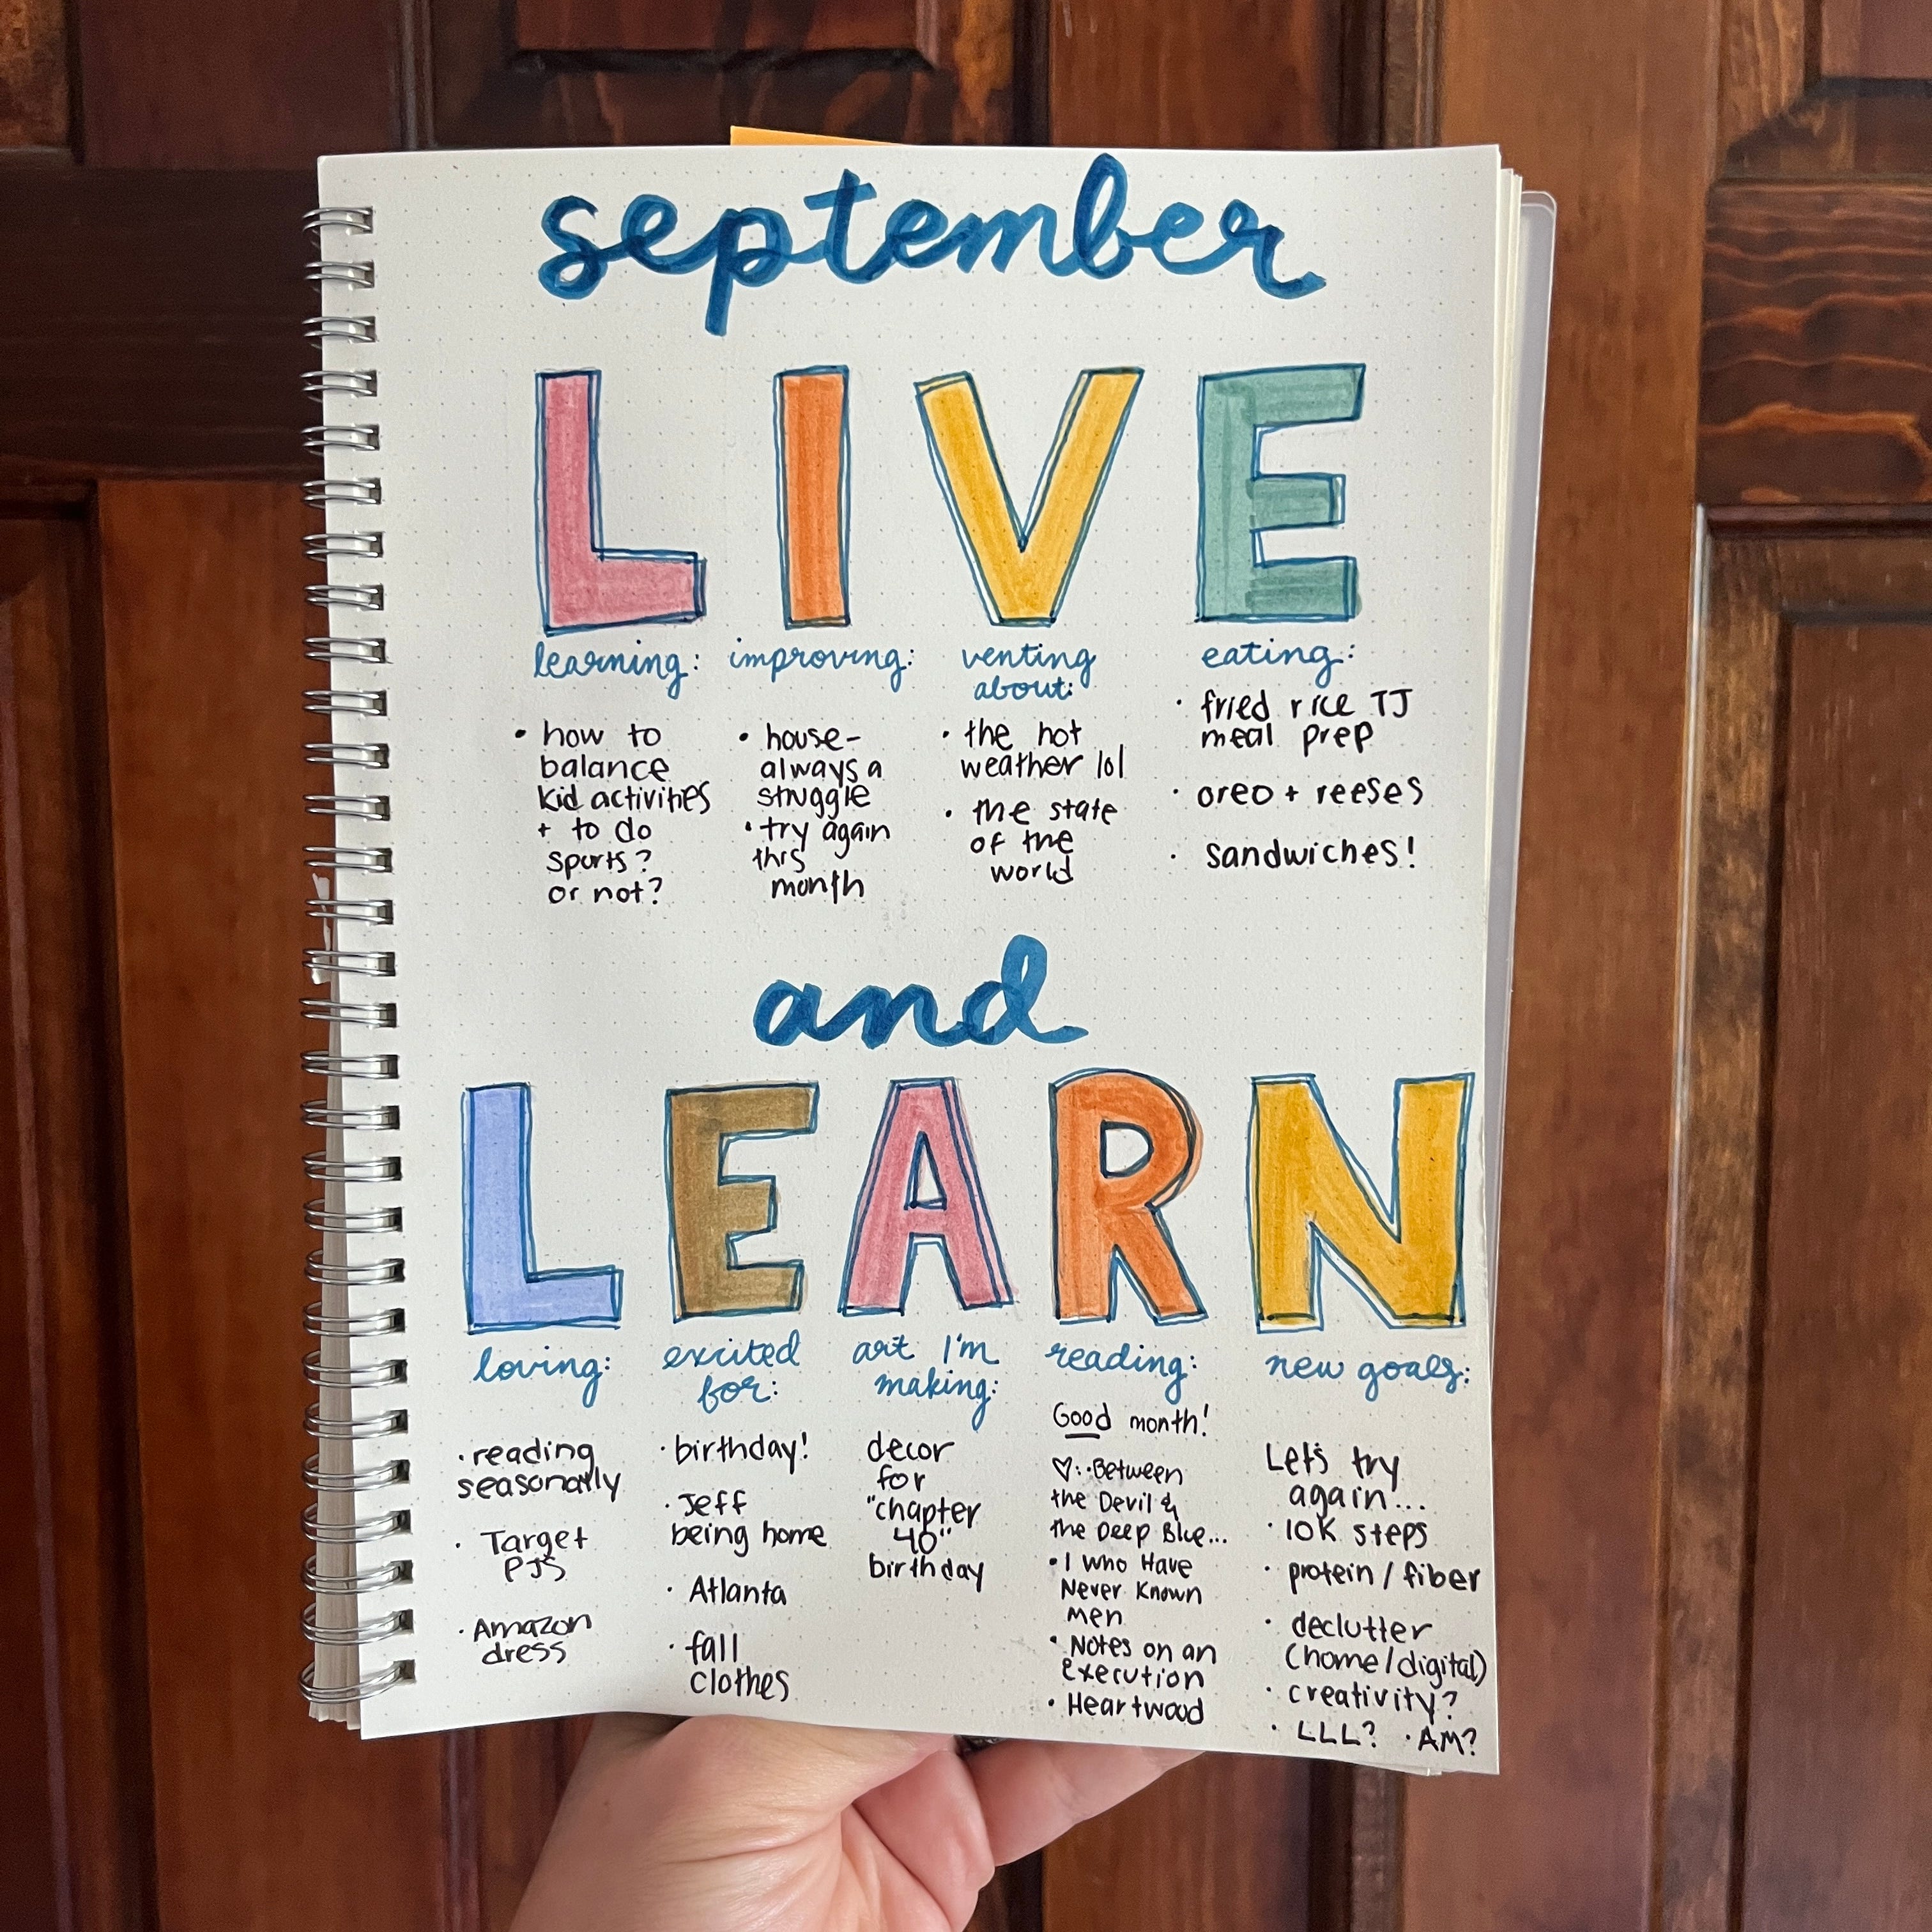 september
LIVE
learning:
• how to
balance
kid activities
+ to do
sports?
or not?
improving:
• house-
always a
struggle
• try again
this
month
venting
about:
• the hot
weather lol
• the state
of the
world
eating:
• fried rice TJ
meal prep
• oreo + reeses
• sandwiches!
and
LEARN
loving:
• reading
seasonally
• Target
PJS
• Amazon
dress
excited
for:
• birthday!
• Jeff
being home
• Atlanta
• fall
clothes
art I'm
making:
decor
for
"chapter
40"
birthday
reading:
Good month!
♡: • Between
the Devil &
the Deep Blue...
• I Who Have
Never Known
Men
• Notes on an
execution
• Heartwood
new goals:
Let's try
again...
• 10K steps
• protein / fiber
• declutter
(home/digital)
• creativity?
• LLL? • AM?